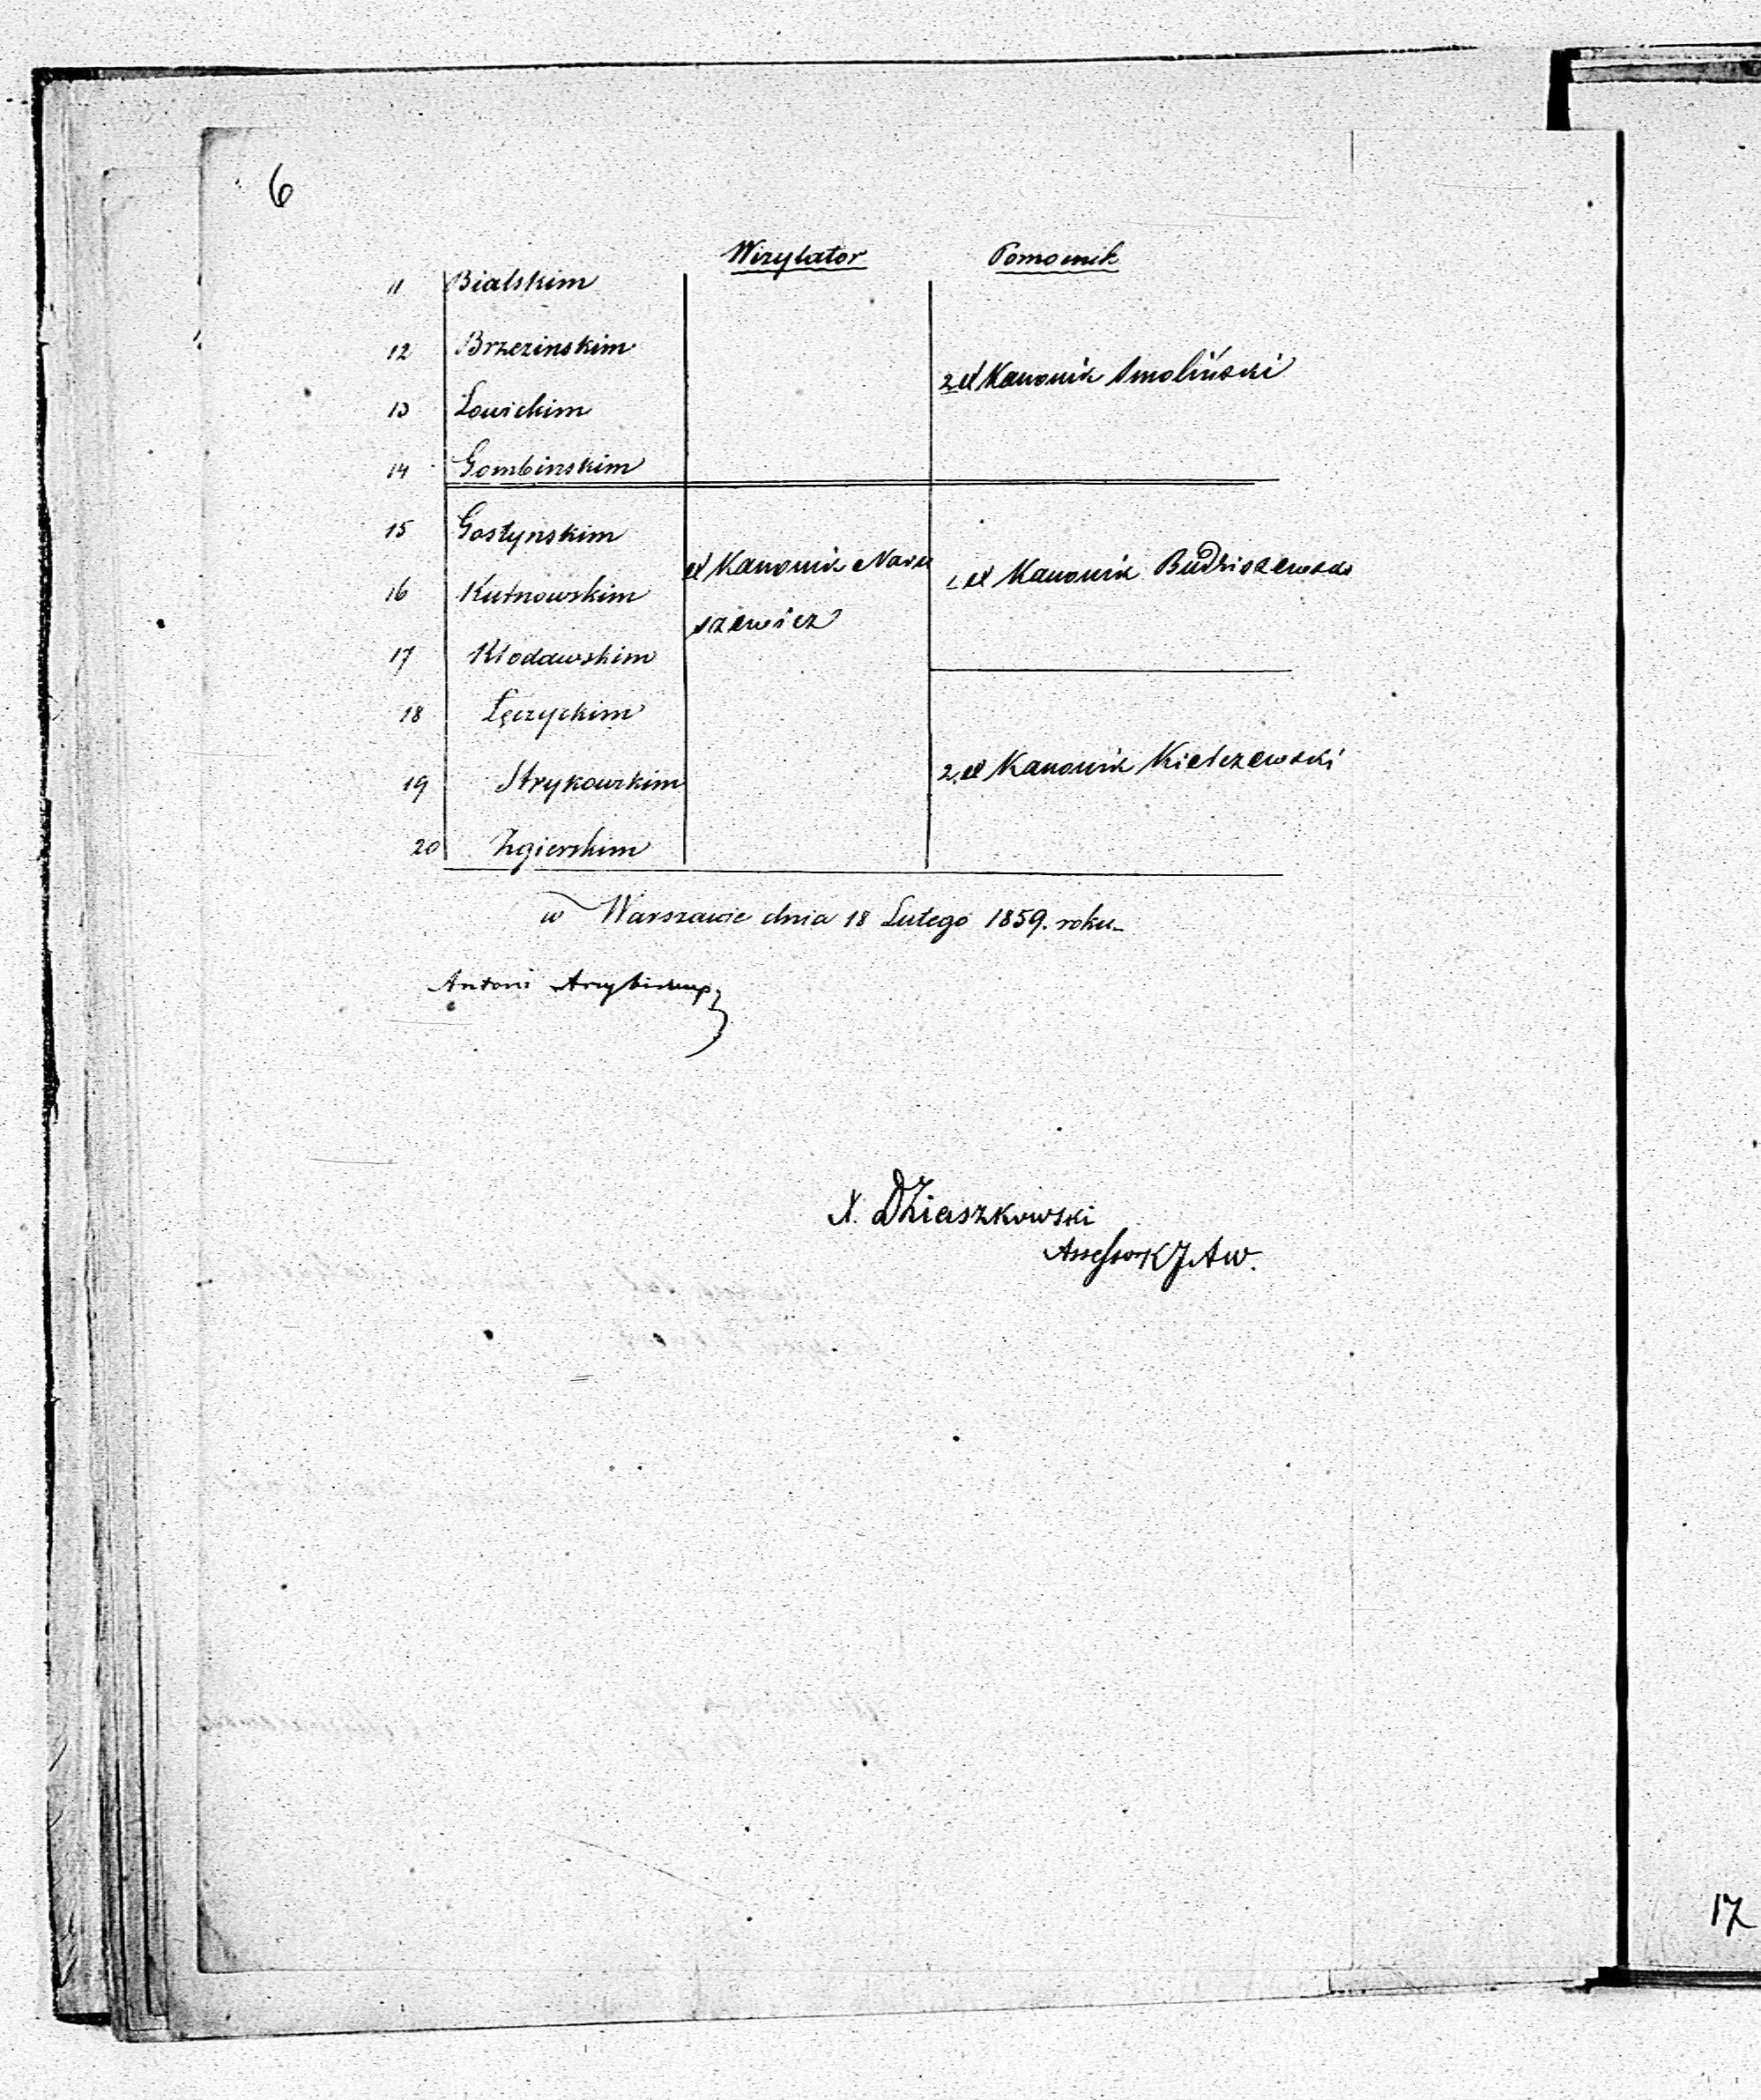 6
Wizytator Pomocnik
11 Bialskim
12 Brzezinskim
2 X Kanonik Smoliński
13 Łowickim
14 Gombinskim
15 Gostynskim
X Kanonik Naru 1 X Kanonik Budziszewski
16 Kutnowskim
szewicz
17 Kłodawskim
18 Łęczyckim
2 X Kanonik Kiełczewski
19 Strykowskim
20 Zgierskim
w Warszawie dnia 18 Lutego 1859. roku
Antoni Arcybiskup
X. Dziaszkowski
Assessor K J A W.
17